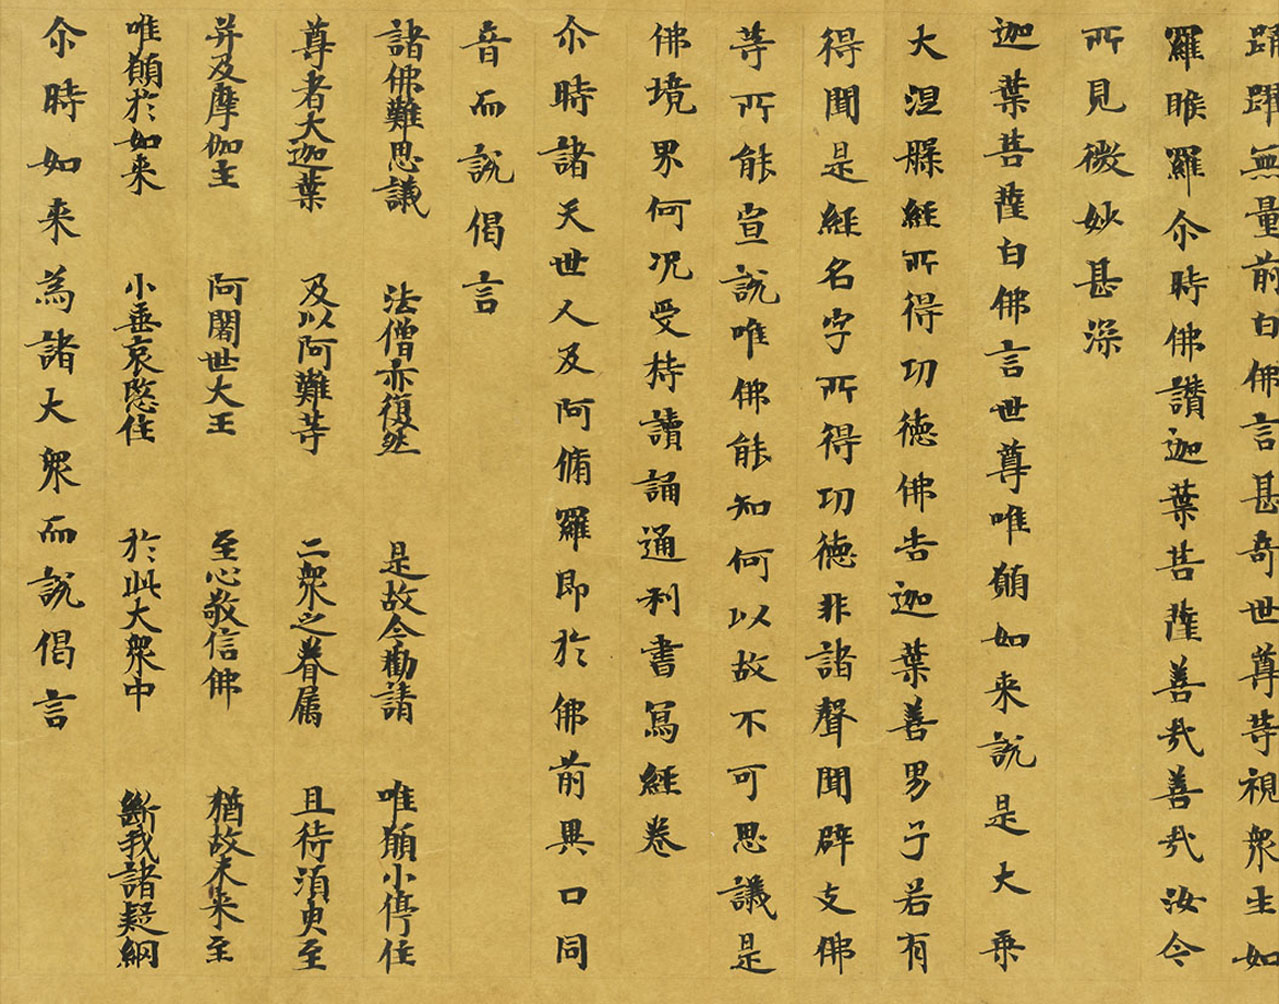 踊躍無量前白佛言甚奇世尊等視衆生如
羅睺羅尒時佛讃迦葉菩薩善哉善哉汝今
所見微妙甚深
迦葉菩薩白佛言世尊唯願如来説是大乗
大涅槃經所得功徳佛告迦葉善男子若有
得聞是經名字所得功徳非諸聲聞辟支佛
等所能宣説唯佛能知何以故不可思議是
佛境界何况受持讀誦通利書冩經卷
尒時諸天世人及阿脩羅即於佛前異口同
音而説偈言
諸佛難思議　法僧亦復然　是故今勸請　唯願小停住
尊者大迦葉　及以阿難等　二衆之眷属　且待湏臾至
并及摩伽主　阿闍世大王　至心敬信佛　猶故未来至
唯願於如来　小垂哀愍住　於此大衆中　斷我諸疑網
尒時如来為諸大衆而説偈言